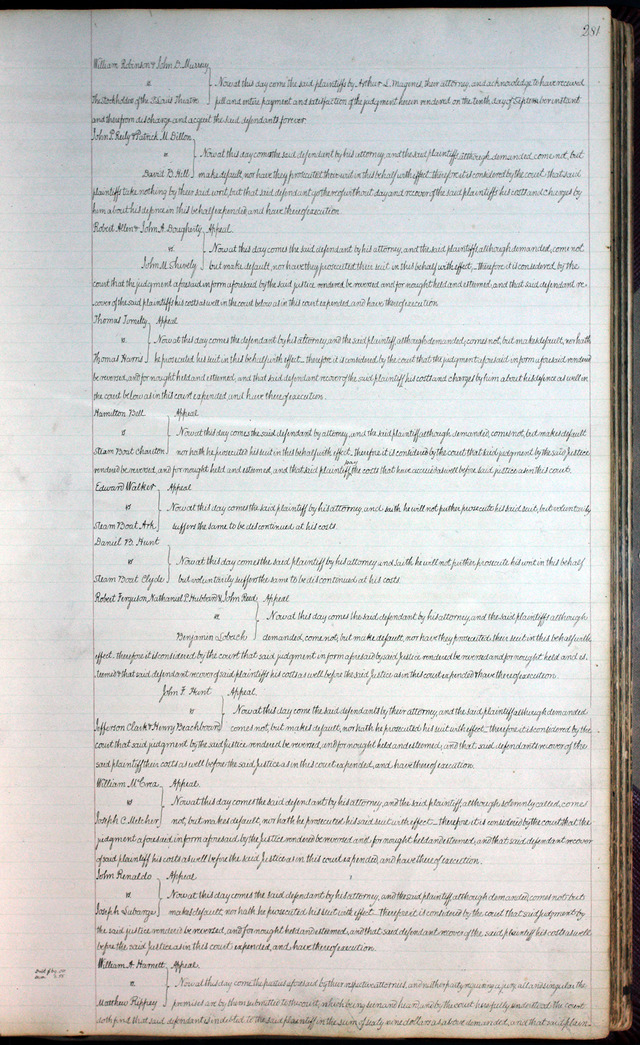 281
William Robinson & John D. Murray
vs } Now at this day come the said plaintiffs by Arthur L. Magenis, their attorney, and acknowledge to have received
The Stockholders of the St Louis Theatre } full and entire payment and satisfaction of the judgment herein rendered on the tenth day of September instant
and therefrom discharge and acquit the said defendants forever
John P. Reily & Patrick M. Dillon
vs } Now at this day comes the said defendant by his attorney, and the said plaintiffs although demanded, come not, but
David B. Hill } make default, nor have they prosecuted their suit in this behalf with effect. therefore it is considered by the court that said
plaintiffs take nothing by their said writ, but that said defendant go thereof without day and recover of the said plaintiffs his costs and charges by
him about his defence in this behalf expended, and have thereof execution
Robert Allen & John A. Dougherty } Appeal
vs } Now at this day comes the said defendant by his attorney, and the said plaintiffs although demanded, come not
John M. Shively } but make default, nor have they prosecuted their suit in this behalf with effect. therefore it is considered by the
court that the judgment aforesaid in form aforesaid, by the said justice rendered be reversed and for nought held and esteemed, and that said defendant re-
cover of the said plaintiffs his costs as well in the court below as in this court expended, and have thereof execution
Thomas } Appeal
vs } Now at this day comes the defendant by his attorney, and the said plaintiff although demanded, comes not, but makes default, nor hath
Thomas Harris } he prosecuted his suit in this behalf with effect. therefore it is considered by the court that the judgment aforesaid in form aforesaid rendered
be reversed, and for nought held and esteemed, and that said defendant recover of the said plaintiff his costs and charges by him about his defence as well in
the court below as in this court expended, and have thereof execution.
Hamilton Bell } Appeal
vs } Now at this day comes the said defendant by attorney, and the said plaintiff although demanded, comes not, but makes default
Steam Boat Chariton } nor hath he prosecuted his suit in this behalf with effect. therefore it is considered by the court that said judgment by the said Justice
rendered be reversed, and for nought held and esteemed, and that said plaintiff pay the costs that have accrued as well before said justice as in this court.
Edward Walker } Appeal
vs } Now at this day comes the said plaintiff by his attorney, and saith he will not further prosecute his said suit, but voluntarily
Steam Boat Ark } suffers the same to be discontinued at his costs.
Daniel B. Hunt
vs } Now at this day comes the said plaintiff by his attorney and saith he will not further prosecute his writ in this behalf
Steam Boat Clyde } but voluntarily suffers the same to be discontinued at his costs.
Robert Ferguson, Nathaniel P. Hubbard & John Reed } Appeal
vs } Now at this day comes the said defendant by his attorney, and the said plaintiffs although
Benjamin } demanded, come not, but make default, nor have they prosecuted their suit in this behalf with
effect. therefore it is considered by the court that said judgment in form aforesaid by said Justice rendered be reversed and for nought held and es-
teemed & that said defendant recover of said plaintiffs his costs as well before the said Justice as in this court expended & have thereof execution.
John F. Hunt } Appeal
vs } Now at this day come the said defendants by their attorney, and the said plaintiff although demanded
Jefferson Clark & Henry Beachboard } comes not, but makes default, nor hath he prosecuted his suit with effect. therefore it is considered by the
court that said judgment by the said Justice rendered be reversed, and for nought held and esteemed, and that said defendants recover of the
said plaintiff their costs as well before the said Justice as in this court expended, and have thereof execution.
William McCrea } Appeal.
vs } Now at this day comes the said defendant by his attorney, and the said plaintiff, although solemnly called, comes
Joseph C. Melcher } not, but makes default, nor hath he prosecuted his said suit with effect. therefore it is considered by the court that the
judgment aforesaid in form aforesaid, by the Justice rendered be reversed and for nought held and esteemed, and that said defendant recover
of said plaintiff his costs as well before the said Justice as in this court expended, and have thereof execution.
John Renaldo } Appeal
vs } Now at this day comes the said defendant by his attorney, and the said plaintiff although demanded, comes not but
Joseph } makes default, nor hath he prosecuted his suit with effect. Therefore it is considered by the court that said judgment by
the said justice rendered be reversed, and for nought held and esteemed, and that said defendant recover of the said plaintiff his costs as well
before the said Justice as in this court expended, and have thereof execution.
William A. Harnett } Appeal.
vs } Now at this day come the parties aforesaid by their respective attornies, and neither party requiring a jury, all and singular the
Matthew Rippey } premises are by them submitted to the court, which being seen and heard, and by the court here fully understood, the court
doth find that said defendant is indebted to the said plaintiff in the sum of sixty nine dollars as above demanded, and that said plain-